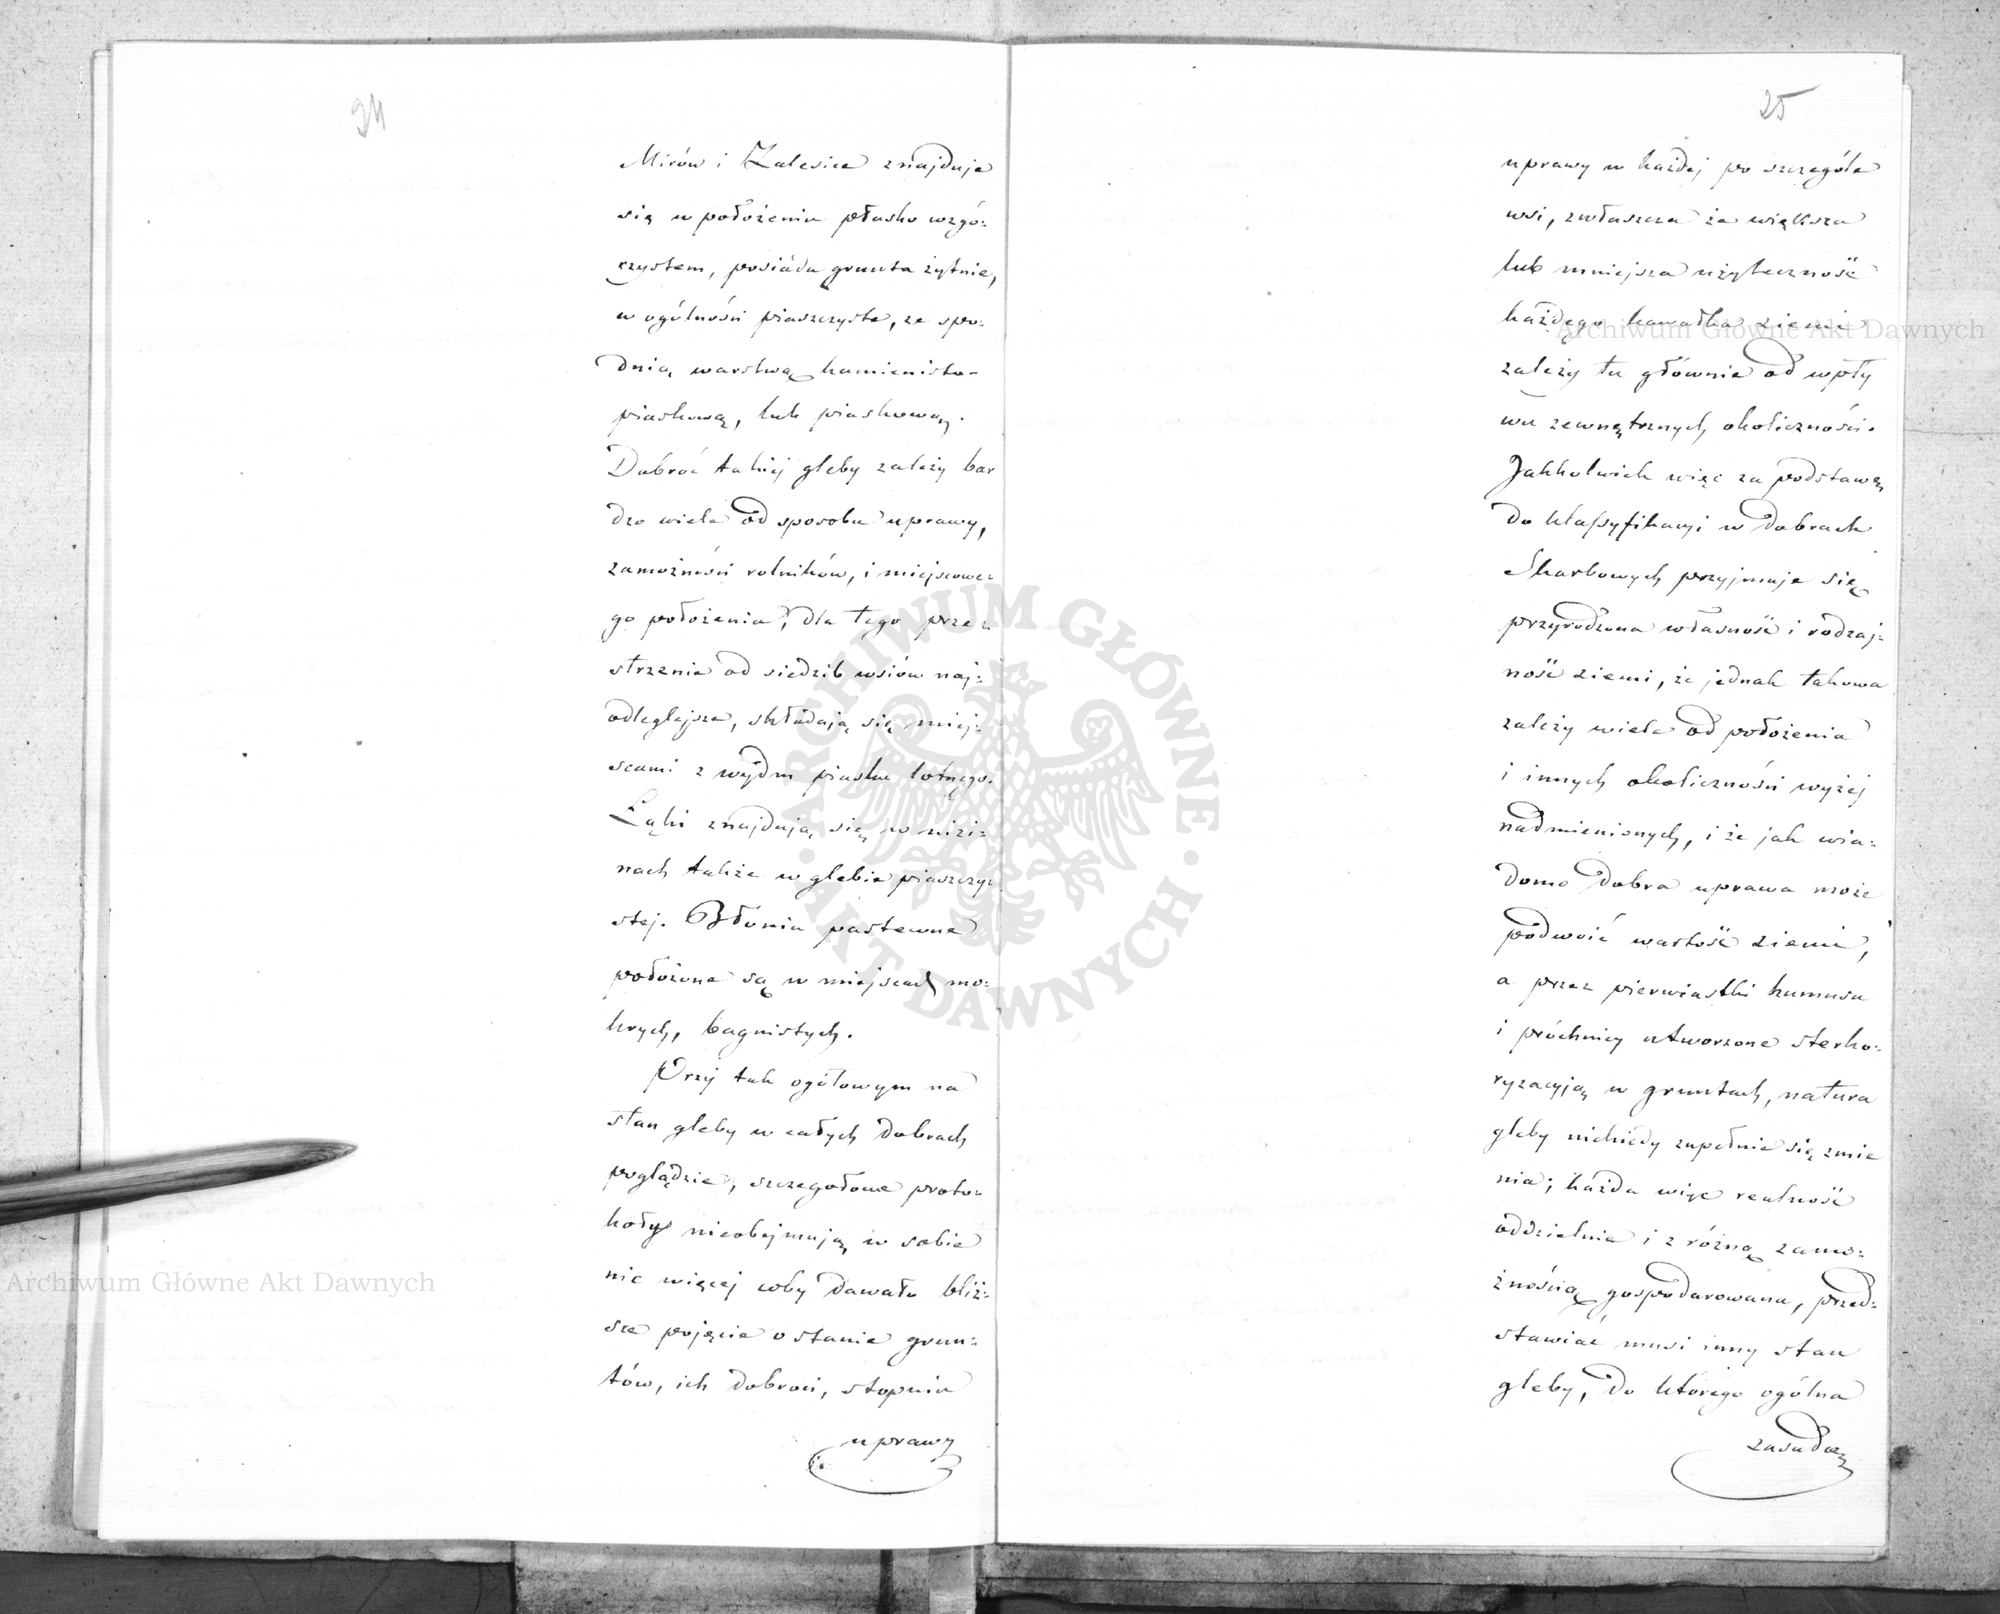 24
Mirów i Zalesice znajduje
się w położeniu płasko wzgó:
rzystem, posiáda grunta żytnie,
w ogólności piaszczyste, ze spo:
dnią warstwą kamienisto-
piaskową, lub piaskową.
Dobroć takiej gleby zależy bar
dzo wiele od sposobu uprawy,
zamożności rolników, i miejscowe:
go położenia, dla tego prze:
strzenie od siedzib wsiów naj:
odleglejsze, składają się miej:
scami z wydm piasku lotnego.
Łąki znajdują się w nizi:
nach także w glebie piaszczy:
stej. Błonia pastewne
położone są w miejscach mo:
krych, bagnistych.
Przy tak ogółowym na
stan gleby w całych dobrach
poglądzie, szczegółowe proto:
koły nieobejmują w sobie
nic więcej coby dawało bliż:
sze pojęcie o stanie grun:
tów, ich dobroci, stopniu
uprawy
25
uprawy w każdej po szczególe
wsi, zwłaszcza że większa
lub mniejsza użyteczność
każdego kawałka ziemi
zależy tu głównie od wpły
wu zewnętrznych okoliczności.
Jakkolwiek więc za podstawę
do klassyfikacyi w dobrach
Skarbowych przyjmuje się
przyrodzona własność i rodzaj:
ność ziemi, że jednak takowa
zależy wiele od położenia
i innych okoliczności wyżej
nadmienionych, i że jak wia:
domo dobra uprawa może
podwoić wartość ziemi,
a przez pierwiastki humusu
i próchnicy utworzone sterko:
ryzacyją w gruntach, natura
gleby niekiedy zupełnie się zmie
nia; każda więc realność
oddzielnie i z różną zamo:
żnością gospodarowana, przed:
stawiać musi inny stan
gleby, do którego ogólna
zasada
Archiwum Główne Akt Dawnych
Archiwum Główne Akt Dawnych
ARCHIWUM GŁÓWNE
AKT DAWNYCH